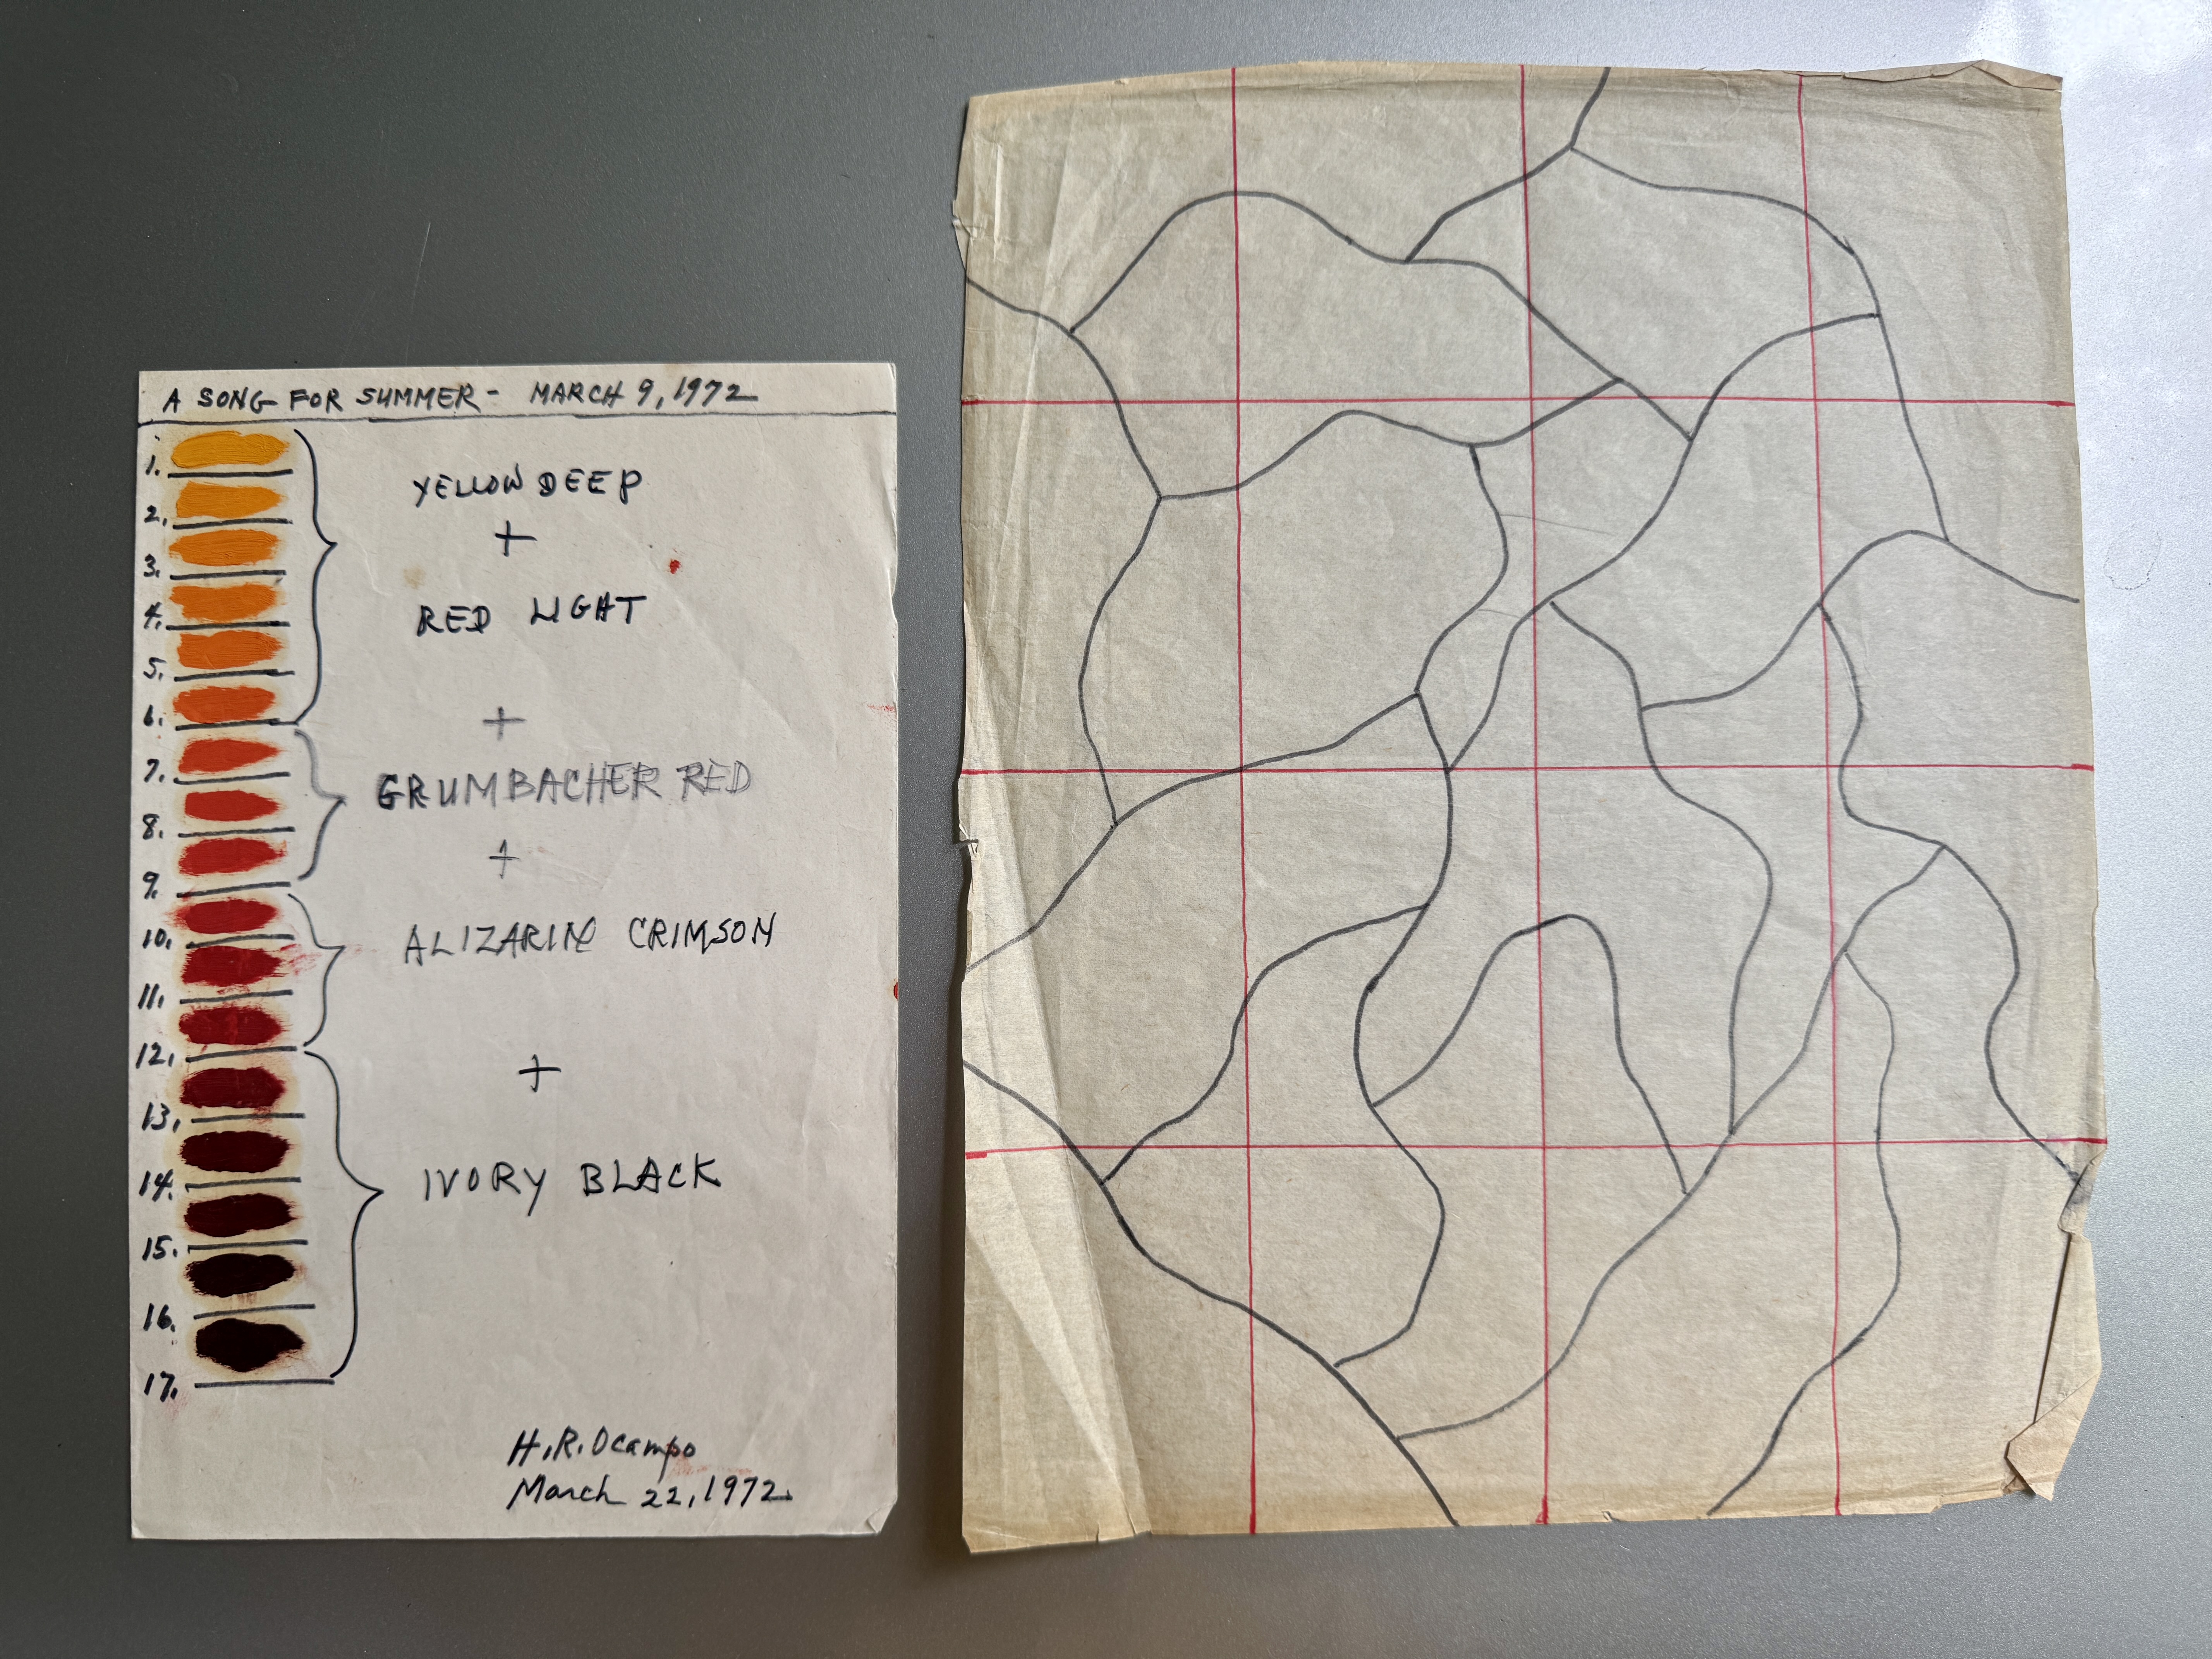 A SONG FOR SUMMER - MARCH 9, 1972
1.
2.
3.
4.
5.
6.
7.
8.
9.
10.
11.
12.
13.
14.
15.
16.
17.
YELLOW DEEP
+
RED LIGHT
+
GRUMBACHER RED
+
ALIZARIN CRIMSON
+
IVORY BLACK
H.R. Ocampo
March 22, 1972.